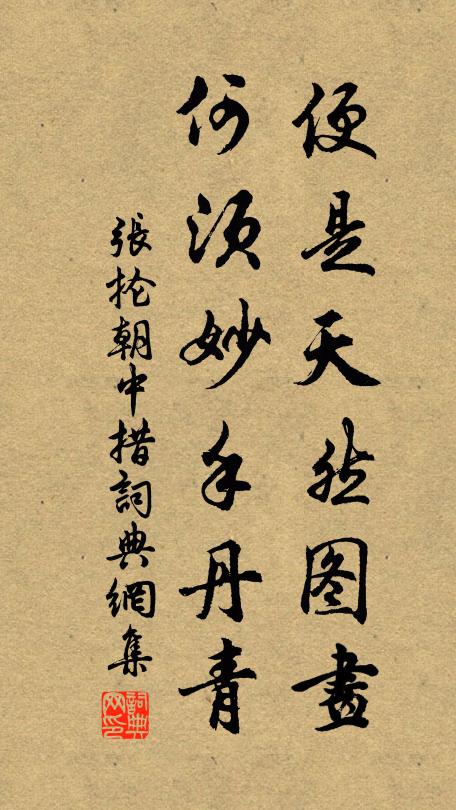 便是天然图畫
何須妙手丹青
張抡朝中措詞典網集
詞典网印